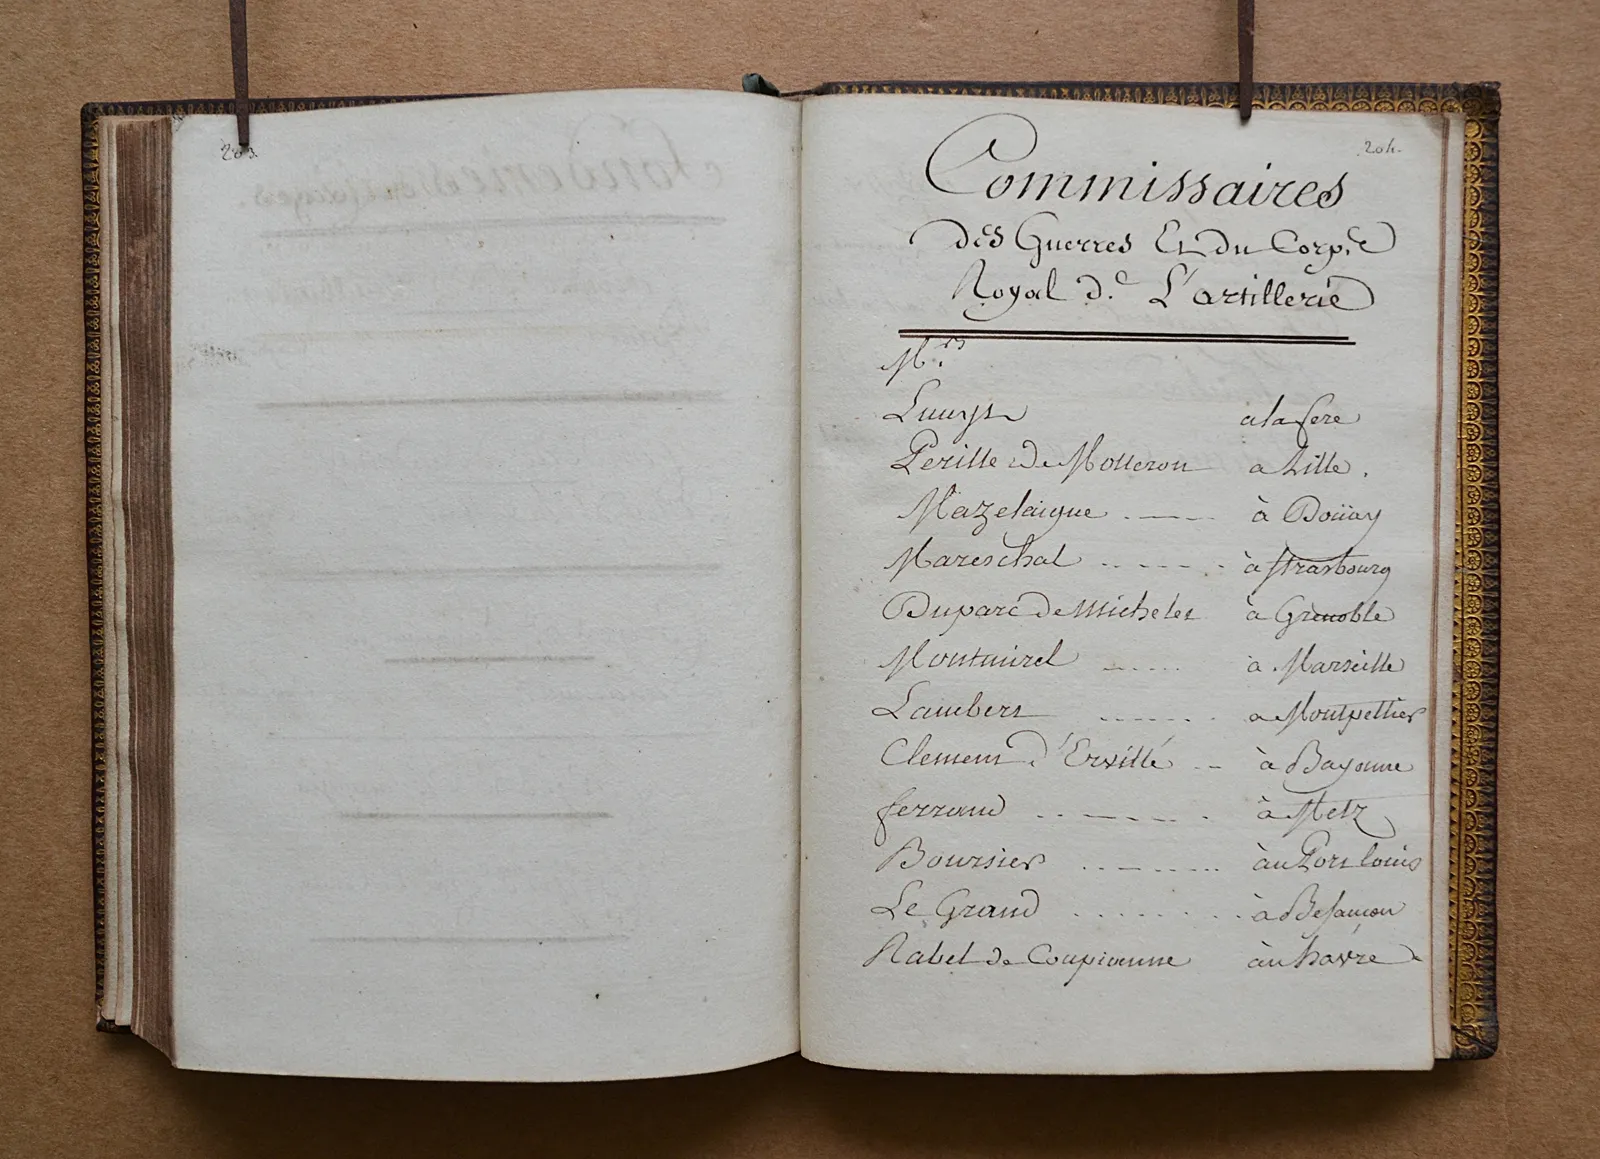 203
204.
Commissaires
des Guerres Et du Corps
Royal de L'artillerie
Mrs
Luuyt a la fere
Perille de Molleron a Lille.
Mazelaigue à Doüay
Mareschal à strasbourg
Duparc de Micheler à Grenoble
Montmirel à Marseille
Lambert a Montpellier
Clement d'Ervillé à Bayonne
ferrand à Metz
Boursier au Port louis
Le Grand à Besançon
Rabel de au havre